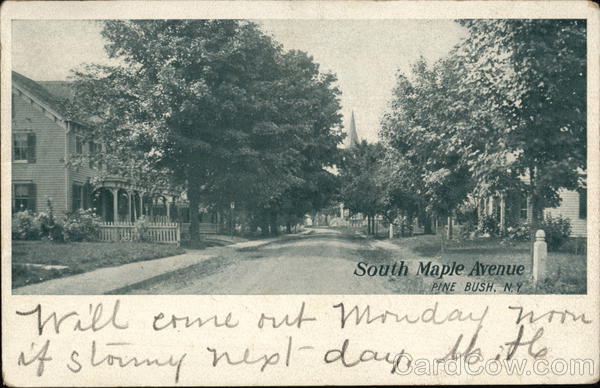 South Maple Avenue
PINE BUSH, N.Y.
Will come out Monday noon
if stormy next day.
CardCow.com